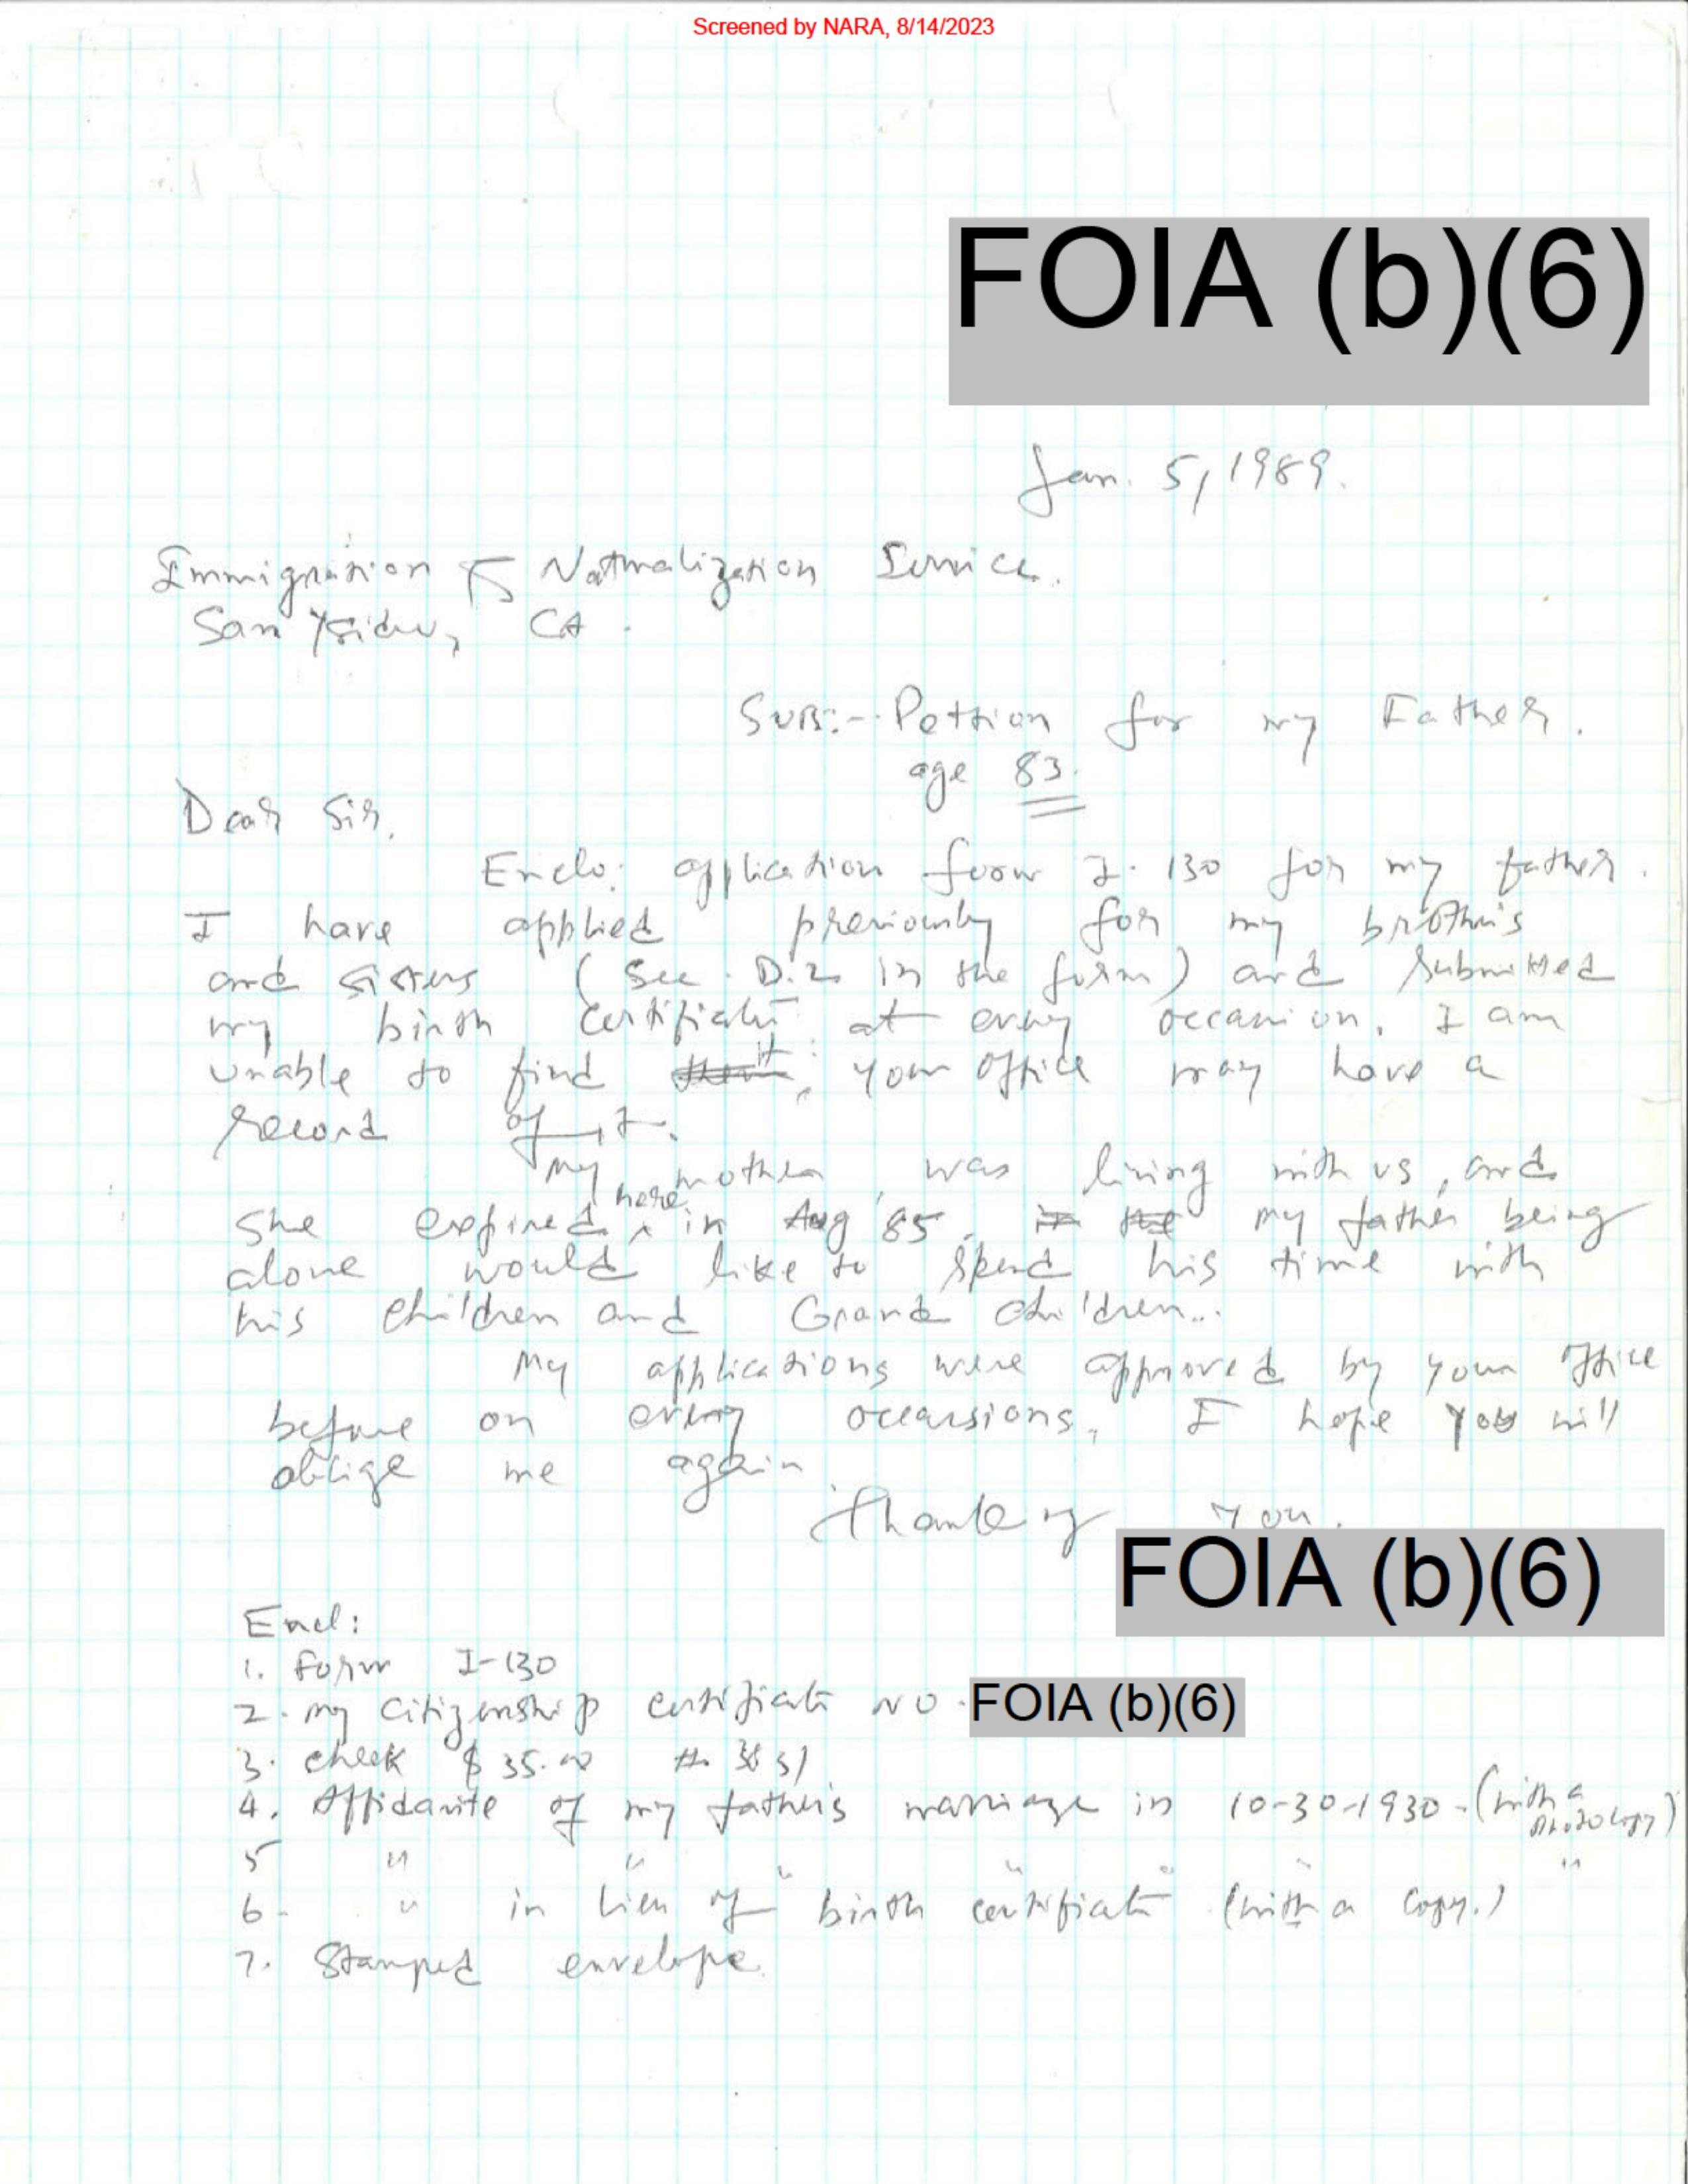 Screened by NARA, 8/14/2023
FOIA (b)(6)
Jan. 5, 1989.
Immigration & Naturalization Service.
San Ysidro, CA.
SUB:- Pettion for my Father.
age 83.
Dear Sir,
Enclo: application form I-130 for my father.
I have applied previously for my brothers
and sisters (See D.2 in the form) and submitted
my birth certificate at every occasion. I am
unable to find it; your office may have a
record of it.
My mother was living with us, and
She expired here in Aug '85. My father being
alone would like to spend his time with
his children and Grand children..
My applications were approved by your office
before on every occasions, I hope you will
oblige me again.
Thanking you.
FOIA (b)(6)
Encl:
1. Form I-130
2. my citizenship certificate NO. FOIA (b)(6)
3. check $35.00 #
4. Affidavite of my father's marriage in 10-30-1930-(with a photocopy)
5 " " " " " " "
6- " in lieu of birth certificate (with a copy.)
7. Stamped envelope.